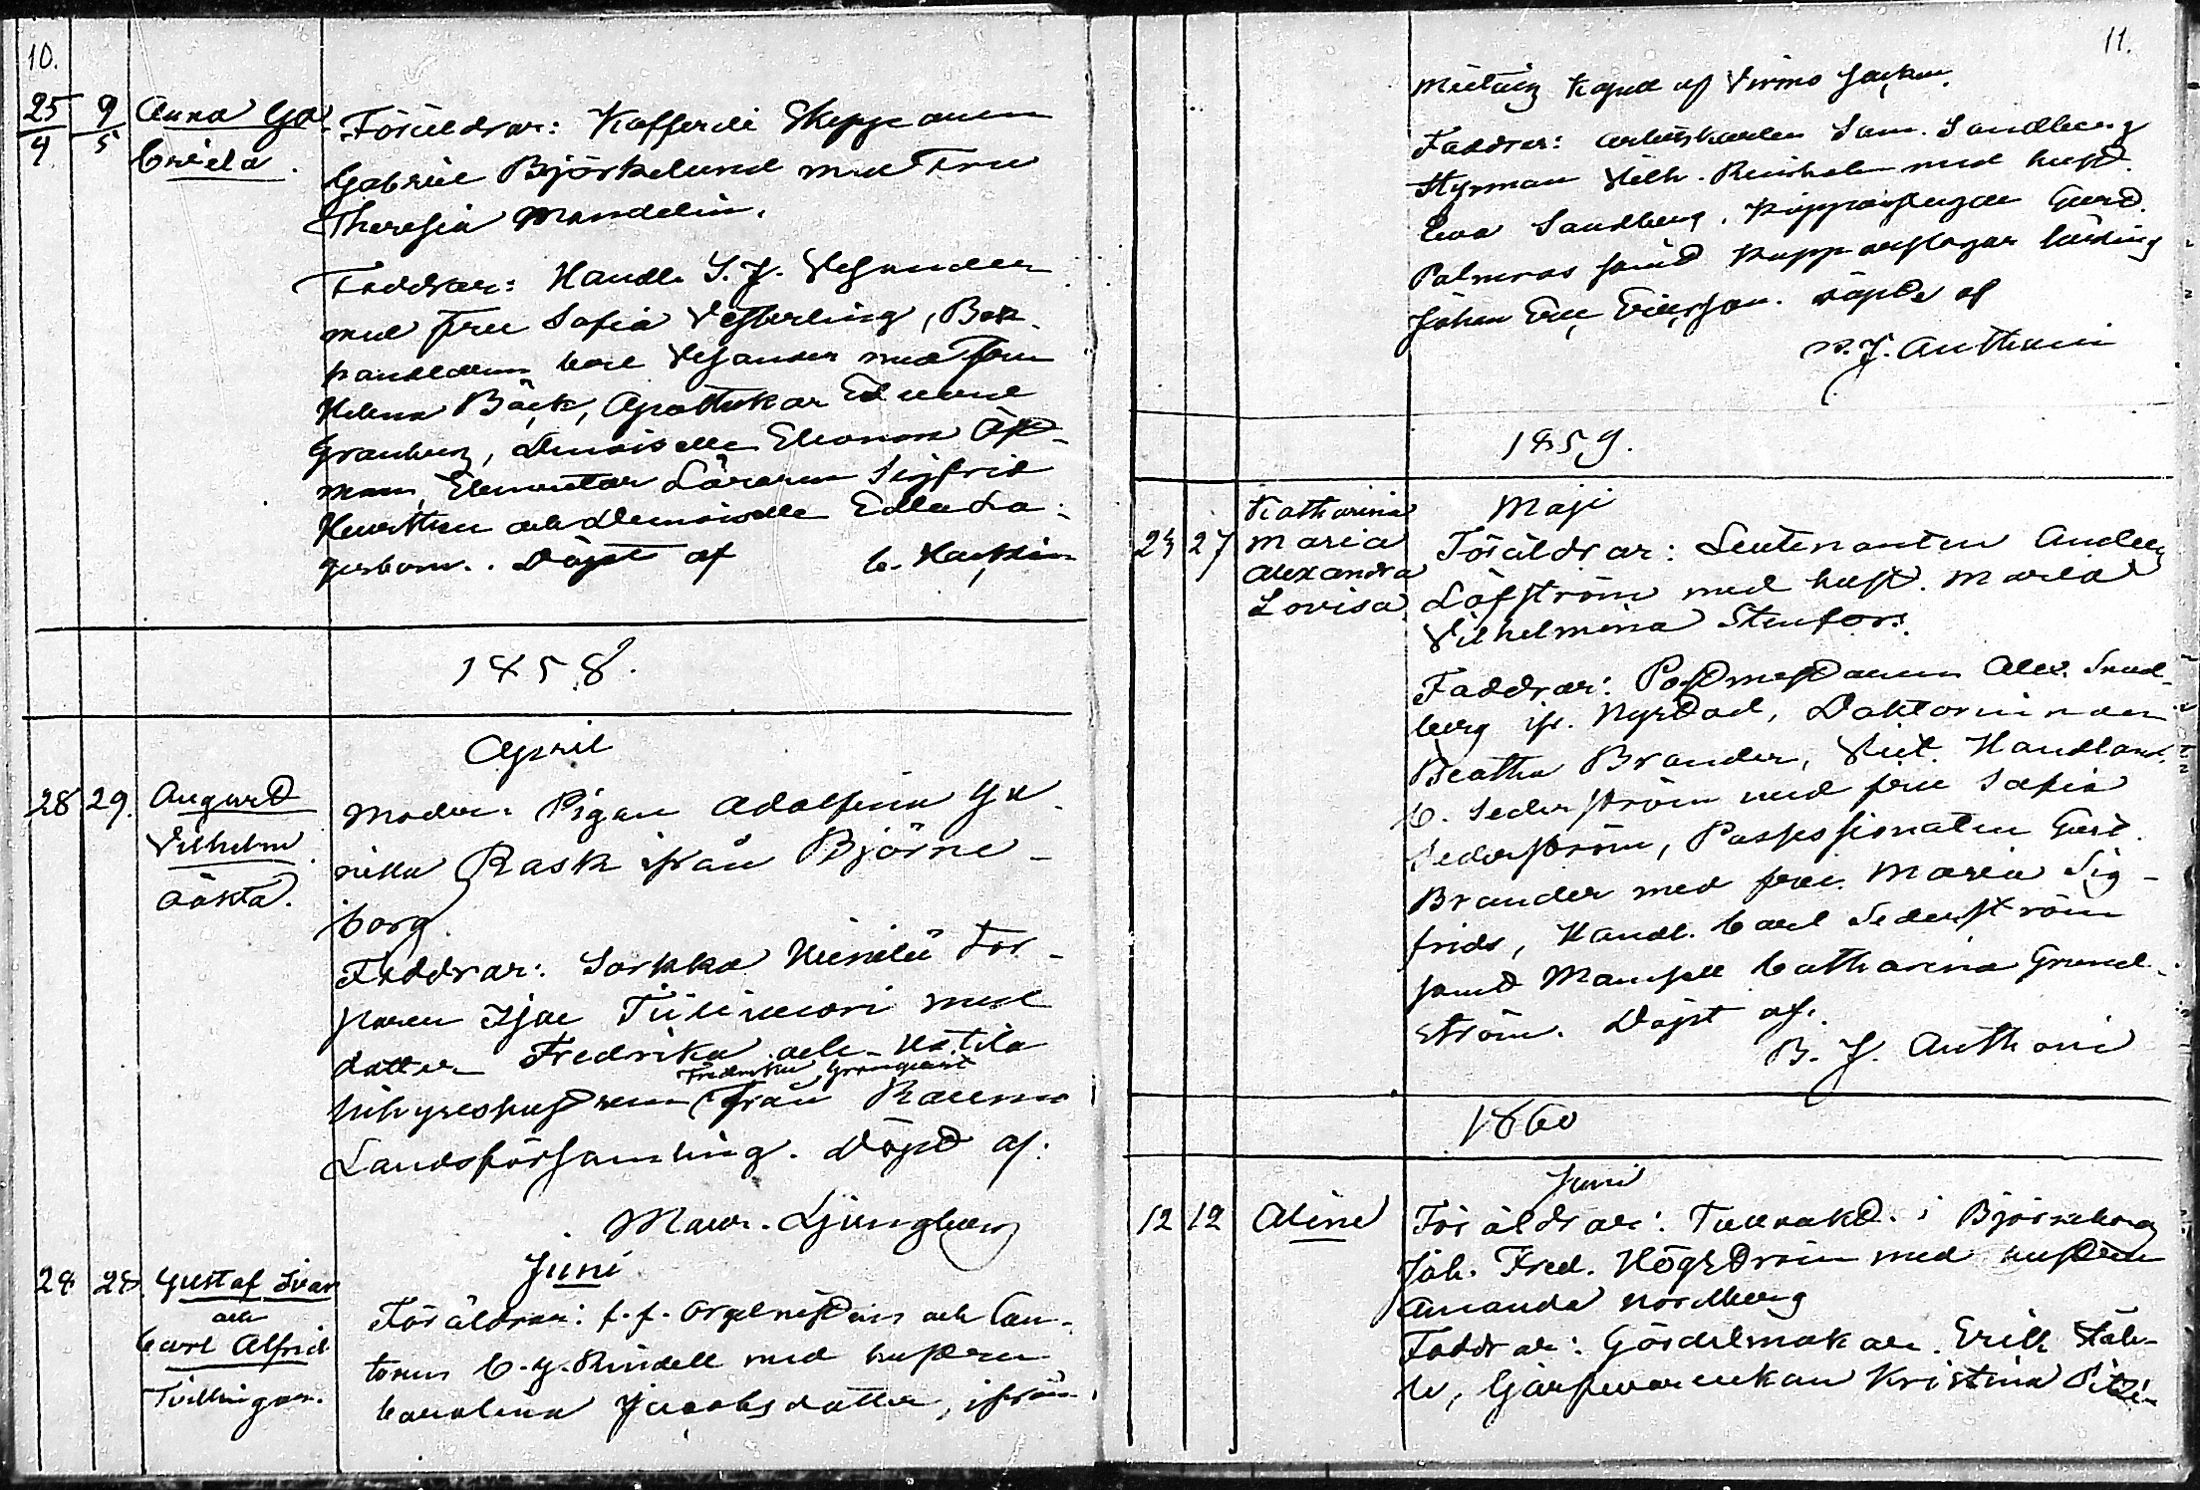 10.
25/4 9/5 Anna Ga-
briela.
Föräldrar: Kofferdi Skepparen
Gabriel Björkelund med Fru
Theresia Mandelin.
Faddrar: Handl. S. J. Vesander
med Fru Sofia Vesterling, Bok-
handlaren Carl Vesander med Fru
Helena Bäck, Apothekar Edvard
Granberg, Demoiselle Eleonora Öst-
man, Elementar Läraren Sigfrid
och Demoiselle Edla La-
gerbom. Döpt af C.
1858.
April
28 29. August
Vilhelm
oäkta.
Moder: Pigan Adolfina Gu-
nilla Rask från Björne-
borg.
Faddrar: Sorkka Torp
paren Isac med
dotter Fredrika och Uotila
Fredrika Granqvist
inhyseshustrun från Raumo
Landsförsamling. Döpt af:
Maur. Ljungberg
Juni
28 28. Gustaf Ivar
och
Carl Alfrid
Tvillingar.
Föräldrar: f. f. Orgelnisten och Can-
toren C. G. Rindell med hustrun
Carolina Jacobsdotter, ifrån
11.
Mietois Kapell af Virmo Socken.
Faddrar: arbetskarlen Sam. Sandberg
Styrman Vilh. Reinholm med hust.
Eva Sandberg. Kopparslagar Gust.
Palmroos samt Kopparslagar lärling
Johan Eric Ericsson. döpte af
B. J. Anthoni
1859.
Maji
24 27 Katharina
Maria
Alexandra
Lovisa.
Föräldrar: Leutenanten Anders
Löfström med hust. Maria
Vilhelmina Stenfors.
Faddrar: Postmestaren Alex. Sund-
berg ifr. Nystad, Doktorinnan
Beatha Brander, Vict. Handland.
C. Sederström med fru Sofia
Sederström, Possessionaten Gust.
Brander med fru Maria Sig-
frids, Handl. Carl Sederström
samt Mamsell Catharina Grund-
ström. Döpt af:
B. J. Anthoni
1860
Juni
12 12 Aline
Föräldrar: Tullvakt. i Björneborg
Joh. Fred. Högström med hustrun
Amanda Nordberg
Faddrar: Gördelmakar. Erik Ståh-
le, Garfvareenkan Kristina